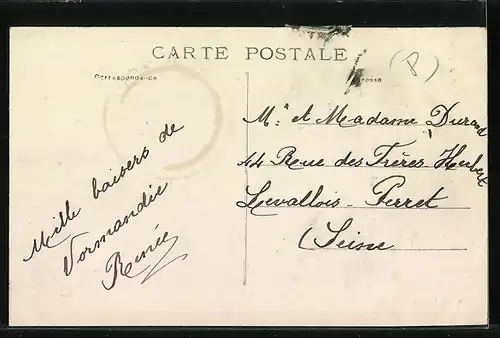 CARTE POSTALE
(P)
Correspondance
Adresse
Mille baisers de
Normandie
Renée
Mr et Madame Durand
44 Rue des Frères Herbert
Levallois-Perret
(Seine